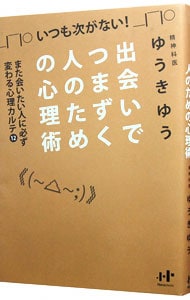 _|￣|○ いつも次がない! _|￣|○
精神科医
ゆうきゆう
出会いで
つまずく
人のため
の心理術
また会いたい人に必ず
変わる心理カルテ12
《(~△~;)》
人のための心理術
ゆうきゆう